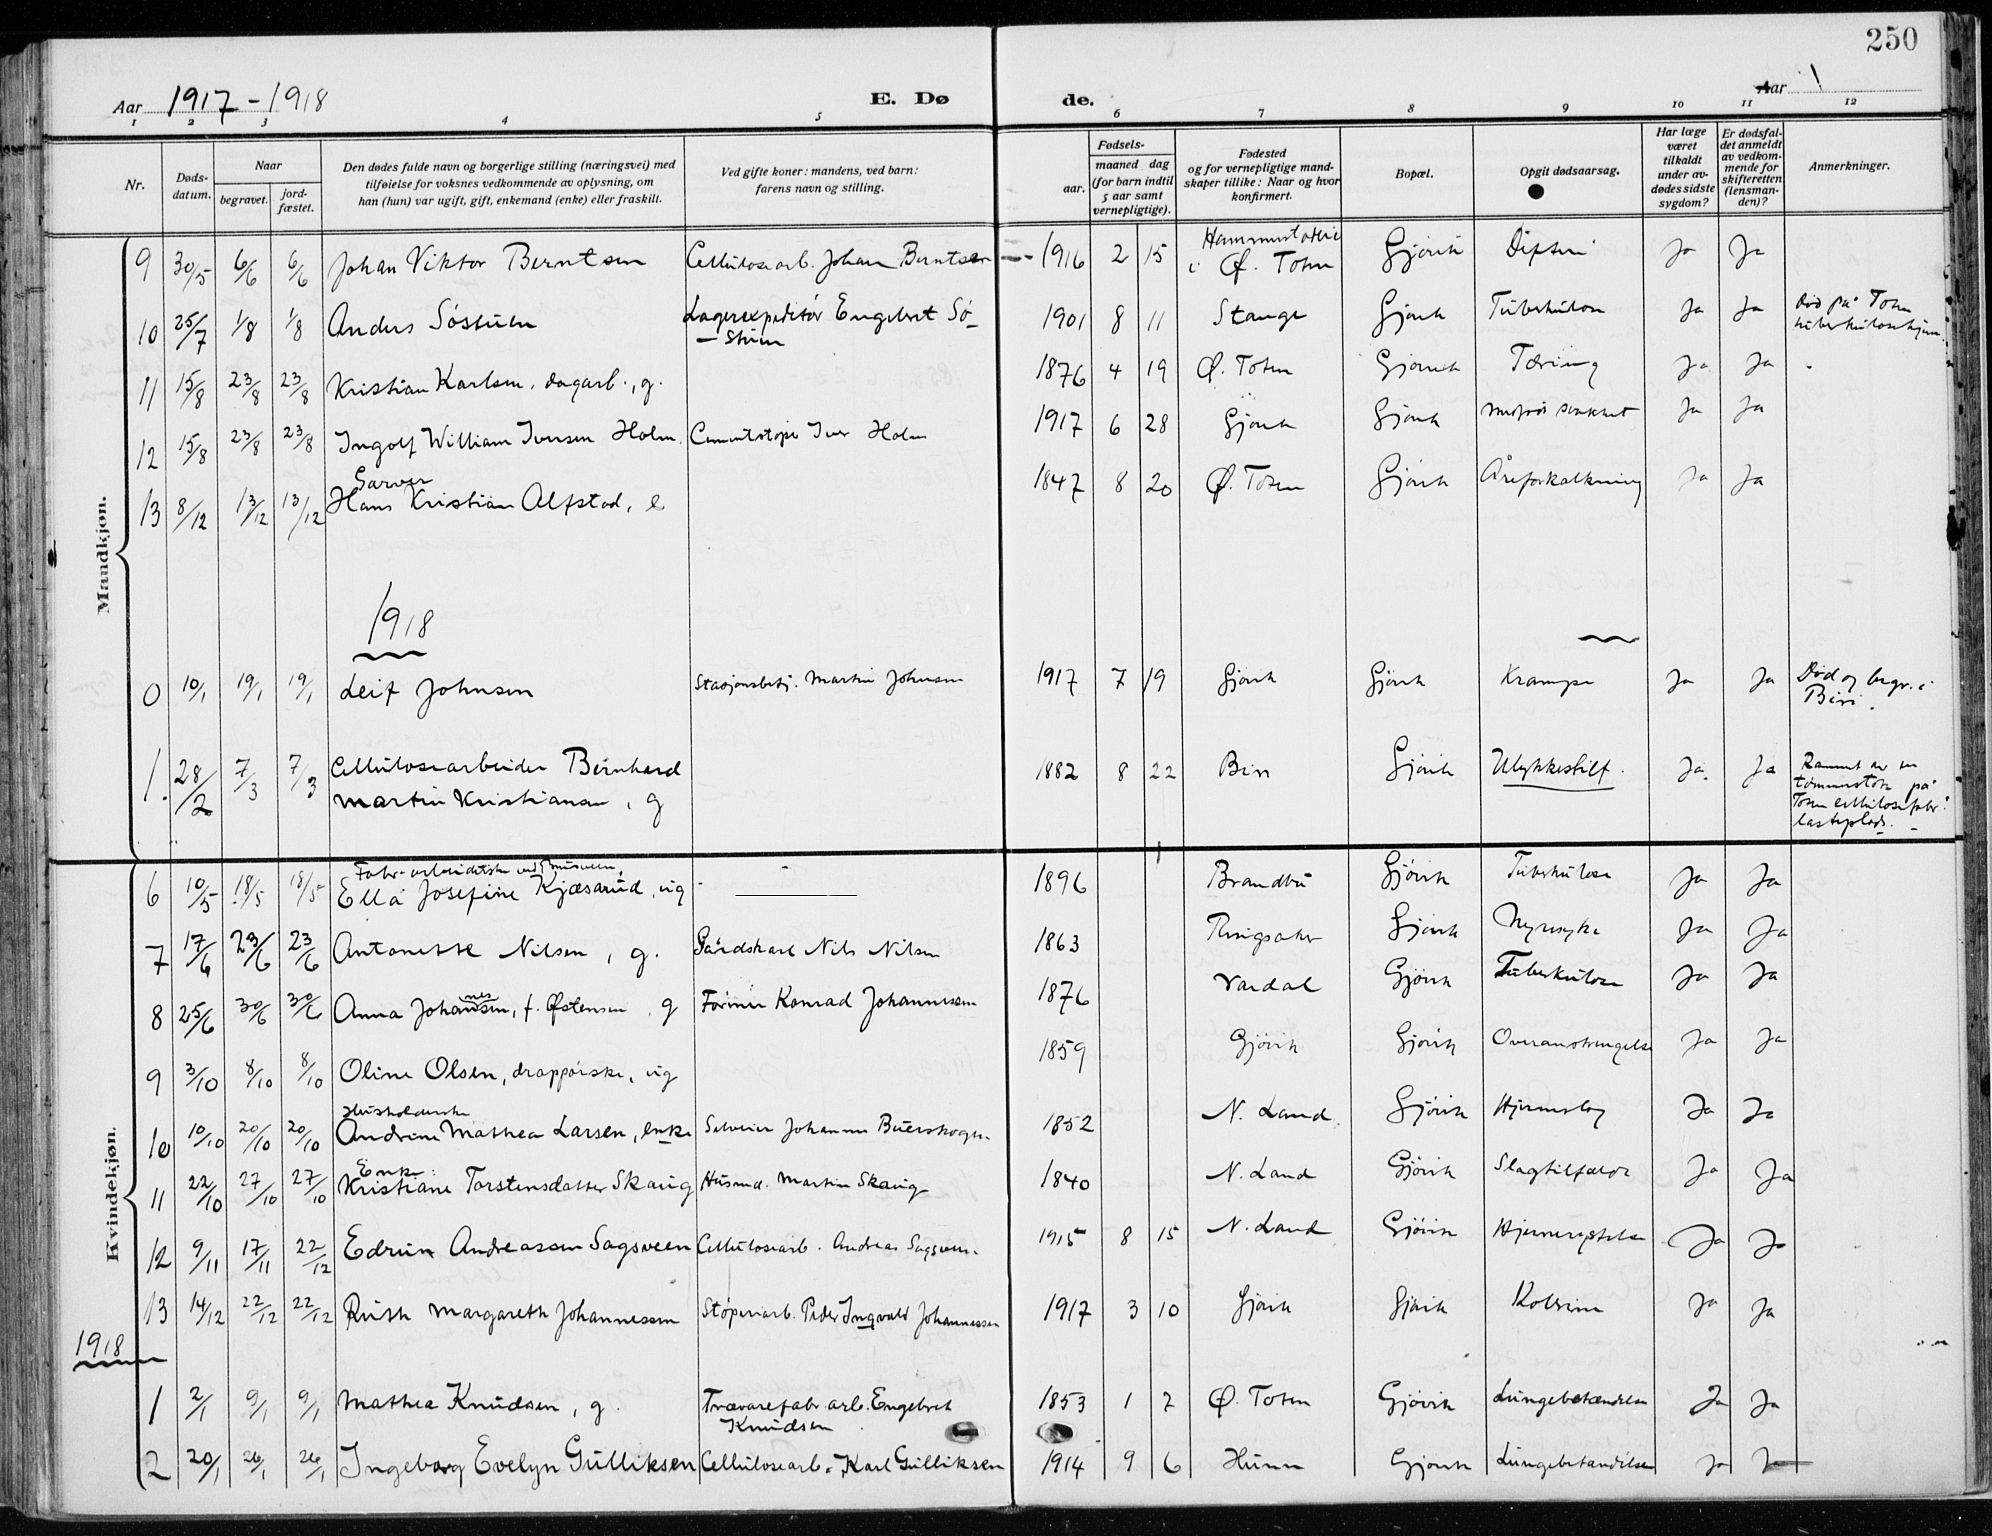 250
Aar 1917-1918 E. Dø de. Aar 1
1 2 3 4 5 6 7 8 9 10 11 12
Nr. Døds-datum. Naar begravet. jord-fæstet. Den dødes fulde navn og borgerlige stilling (næringsvei) med tilføielse for voksnes vedkommende av oplysning, om han (hun) var ugift, gift, enkemand (enke) eller fraskilt. Ved gifte koner: mandens, ved barn: farens navn og stilling. Fødsels- aar. maaned dag (for barn indtil 5 aar samt vernepligtige). Fødested og for vernepligtige mandskaper tillike: Naar og hvor konfirmert. Bopæl. Opgit dødsaarsag. Har læge været tilkaldt under avdødes sidste sygdom? Er dødsfaldet anmeldt av vedkommende for skifteretten (lensmanden)? Anmerkninger.
Mandkjøn.
9 30/5 6/6 6/6 Johan Viktor Berntsen Cellulosearb. Johan Berntsen 1916 2 15 i Ø. Toten Gjøvik Difteri Ja Ja
10 25/7 1/8 1/8 Anders Søstuen Lagerexpeditør Engebret Sø- 1901 8 11 Stange Gjøvik Tuberkulose Ja Ja Død på Toten
- stuen tuberkulosehjem.
11 15/8 23/8 23/8 Kristian Karlsen, dagarb., g. 1876 4 19 Ø. Toten Gjøvik Tæring Ja Ja
12 15/8 23/8 23/8 Ingolf William Iversen Holm Cementstøper Iver Holm 1917 6 28 Gjøvik Gjøvik Ja Ja
Garver
13 8/12 13/12 13/12 Hans Kristian Alfstad, e 1847 8 20 Ø. Toten Gjøvik Åreforkalkning Ja Ja
1918
0 10/1 19/1 19/1 Leif Johnsen Stasjonsbetj. Martin Johnsen 1917 7 19 Gjøvik Gjøvik Krampe Ja Ja Død og begr. i
Biri.
1. 28/2 7/3 7/3 Cellulosearbeider Bernhard 1882 8 22 Biri Gjøvik Ulykkestilf. Ja. Ja Rammet av en
Martin Kristiansen, g tømmerstok på
Toten cellulosefabr.
lasteplads. -
Kvindekjøn.
Fabr. arbeiderske ved
6 10/5 18/5 18/5 Ella Josefine Kjæsarud, ug 1896 Brandbu Gjøvik Tuberkulose Ja Ja
7 17/6 23/6 23/6 Antonette Nilsen, g. Gårdskarl Nils Nilsen 1863 Ringsaker Gjøvik Nyresyke Ja Ja
nes
8 25/6 30/6 30/6 Anna Johansen, f. Østensen, g Former Konrad Johannessen 1876 Vardal Gjøvik Tuberkulose Ja Ja
9 3/10 8/10 8/10 Oline Olsen, ug 1859 Gjøvik Gjøvik Overanstrengelse Ja Ja
Husholderske
10 10/10 20/10 20/10 Andrine Mathea Larsen, enke Selveier Johannes 1852 N. Land Gjøvik Ja Ja
Enke
11 22/10 27/10 27/10 Kristiane Torstensdatter Skaug Husmd. Martin Skaug 1840 N. Land Gjøvik Slagtilfælde Ja Ja
12 9/11 17/11 22/12 Edrun Andreassen Sagsveen Cellulosearb. Andreas Sagsveen. 1915 8 15 N. Land Gjøvik Ja Ja
13 14/12 22/12 22/12 Ruth Margareth Johannessen Støperiarb. Peder Ingvald Johannessen 1917 3 10 Gjøvik Gjøvik Kolerine Ja Ja
1918
1 2/1 9/1 9/1 Mathea Knudsen, g. Trævarefabr. arb. Engebret 1853 1 7 Ø. Toten Gjøvik Lungebetændelse Ja Ja
Knudsen
2 20/1 26/1 26/1 Ingeborg Evelyn Gulliksen Cellulosearb. Karl Gulliksen 1914 9 6 Hunn Gjøvik Lungebetændelse Ja Ja